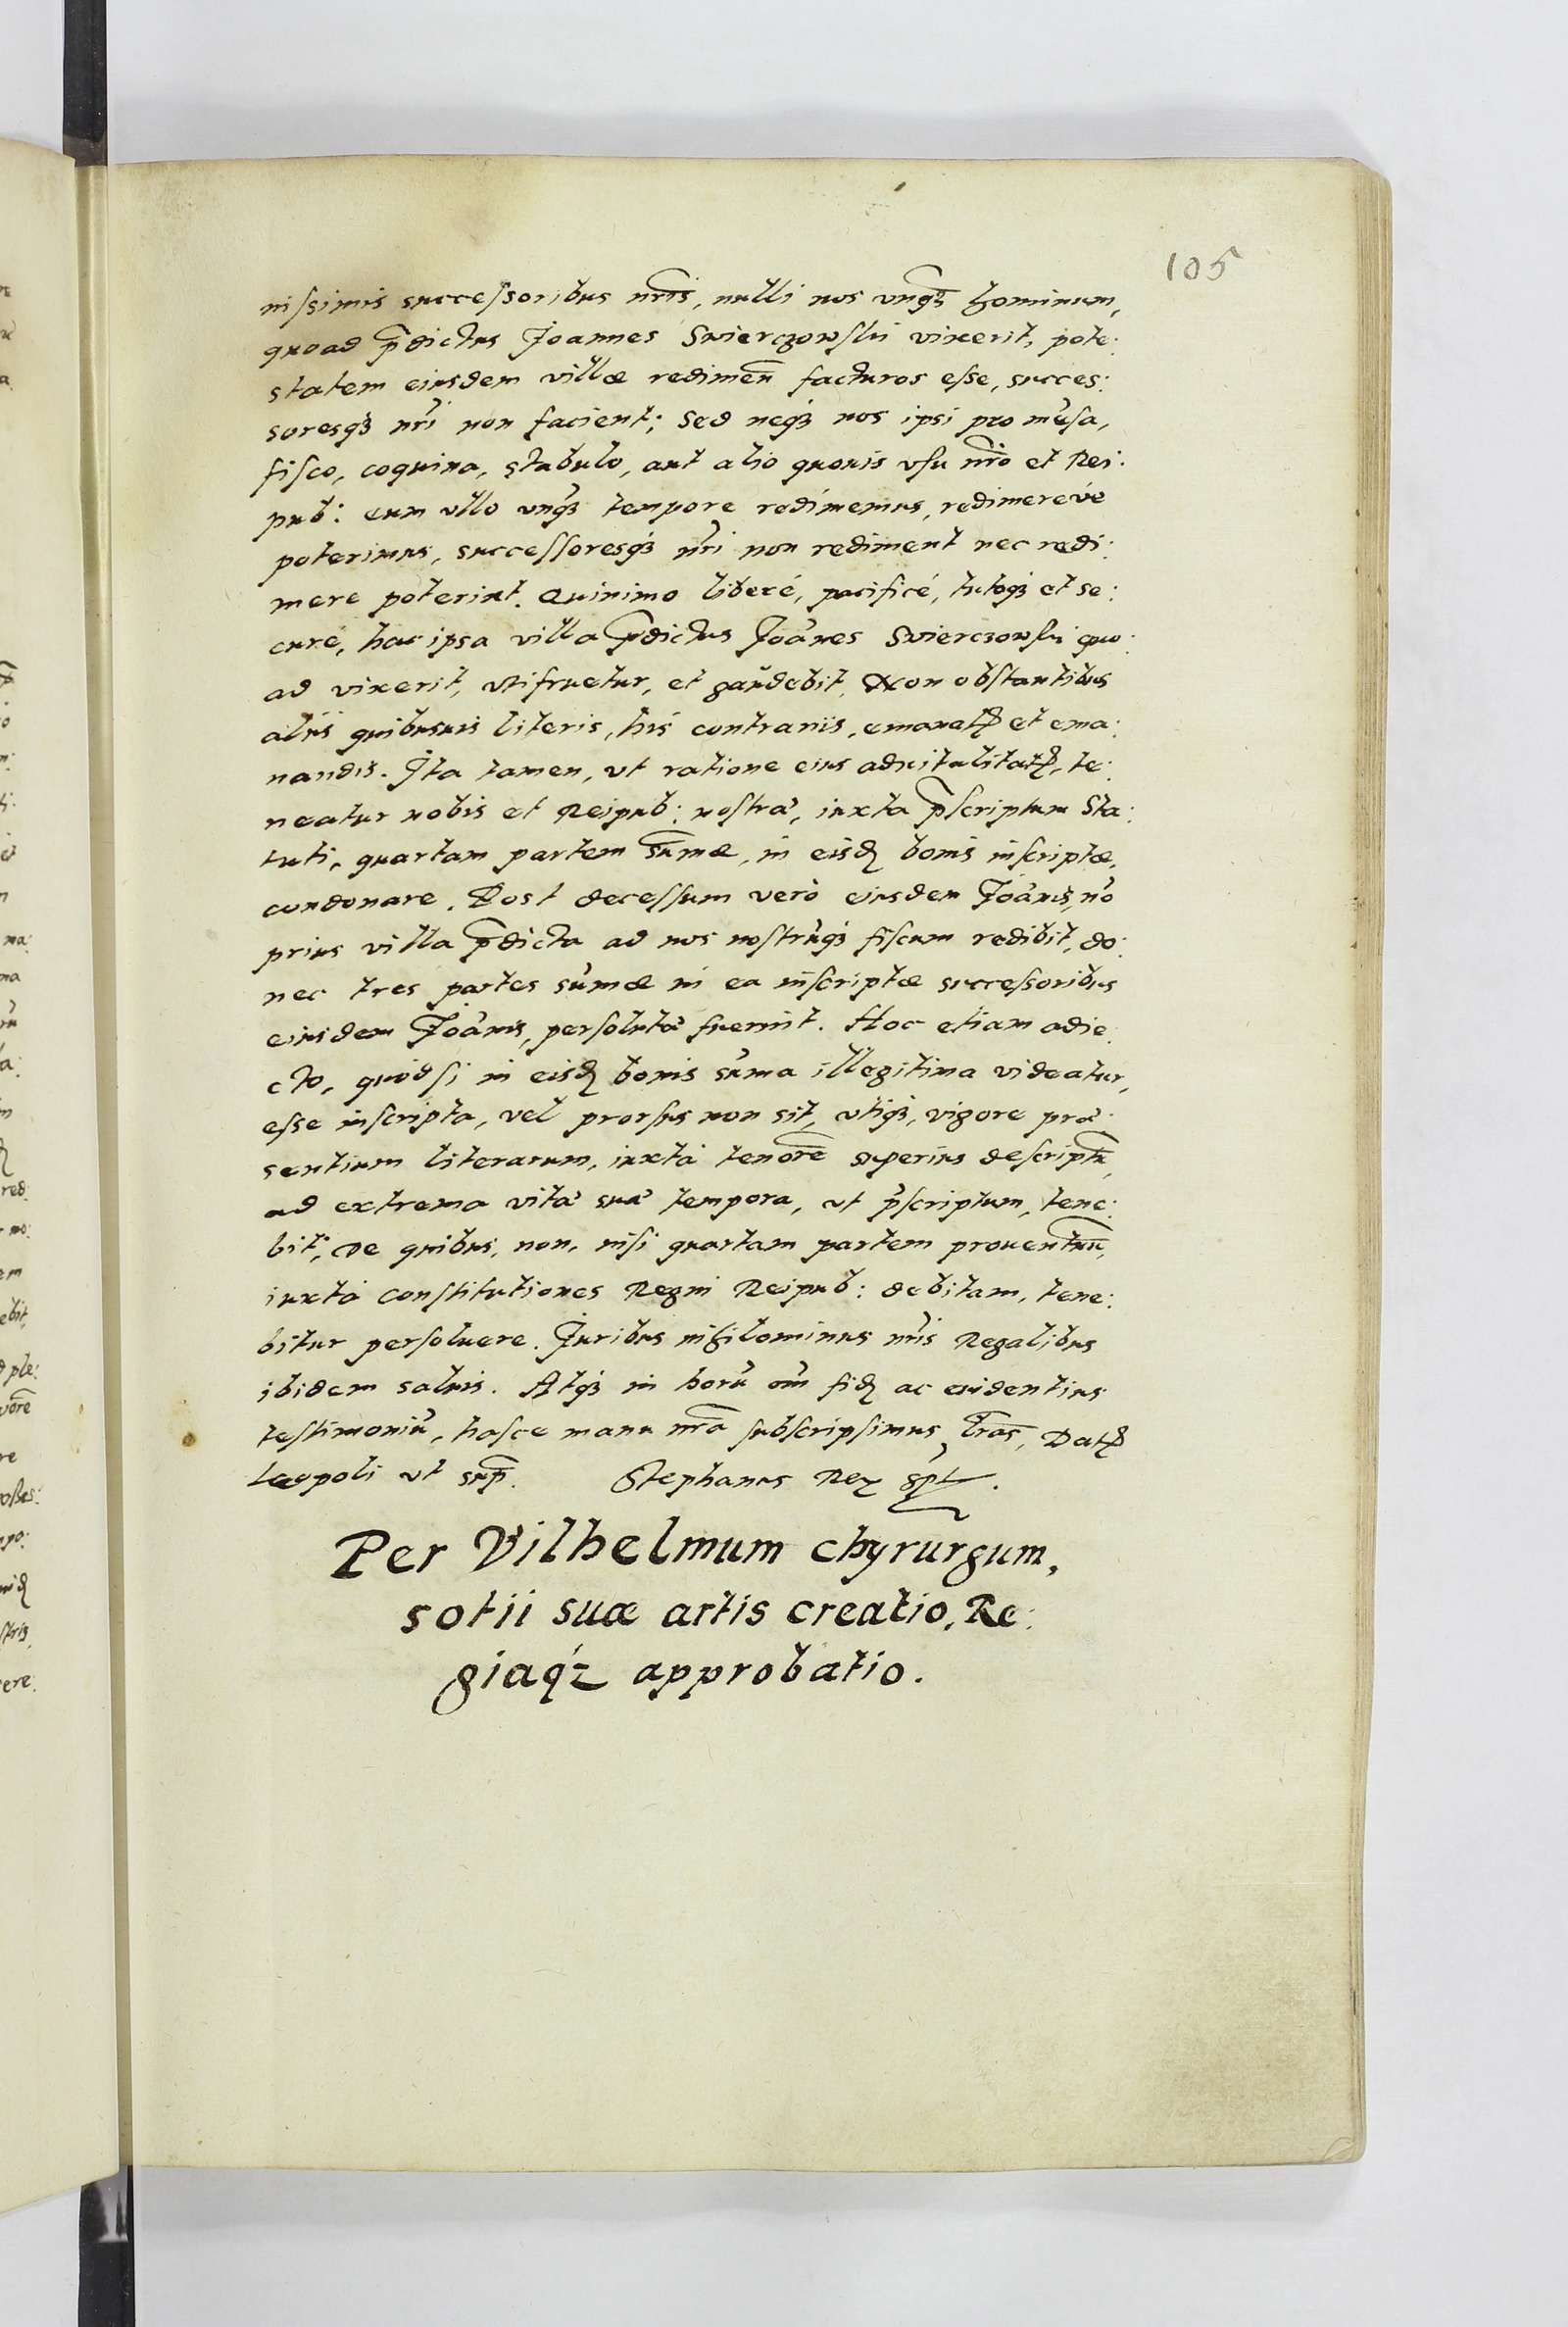 105
nissimis successoribus nr̃is, nulli nos vnq̃ꝫ hominum,
quoad p̃dictus Joannes Swierczowski vixerit, pote:
statem eiusdem villæ redimen̄ facturos esse, succes:
soresqꝫ nr̃i non facient; Sed neqꝫ nos ipsi pro mẽsa,
fisco, coquina, stabulo, aut alio quouis vsu nr̃o et Rei:
pub: eum vllo vnq̃ꝫ tempore redimemus, redimereúe
poterimus, successoresqꝫ nr̃i non rediment nec redi:
mere poterint. Quinimo liberé, pacificé, tutoqꝫ et se:
curé, hac ipsa villa p̃dictus Joãnes Swierczowski quo:
ad vixerit, vtifruetur, et gaudebit, Non obstantibus
alijs quibusuis literis, his contrarijs, emanatꝭ et ema:
nandis. Ita tamen, vt ratione eius aduitalitatꝭ, te:
neatur nobis et Reipub: nostræ, iuxta p̃scriptum Sta:
tuti, quartam partem sum̃æ, in eisdꝫ bonis inscriptæ,
condonare. Post decessum verò eiusdem Joãnis, nõ
prius villa p̃dicta ad nos nostrũqꝫ fiscum redibit, do:
nec tres partes sũmæ in ea inscriptæ successoribus
eiusdem Joãnis, persolutæ fuerint. Hoc etiam adie:
cto, quòd si in eisdꝫ bonis sũma illegitima videatur,
esse inscripta, vel prorsus non sit, vtiqꝫ, vigore præ:
sentium literarum, iuxtà tenorẽ superius descriptũ,
ad extrema vitæ suæ tempora, ut p̃scriptum, tene:
bit; De quibus, non, nisi quartam partem prouentuũ,
iuxtà constitutiones Regni Reipub: debitam, tene:
bitur persoluere. Juribus nihilominus nr̃is Regalibus
ibidem saluis. Atqꝫ in horũ om̃ fidꝫ ac euidentius
testimoniũ, hasce manu nr̃a subscripsimus, l̃ras, Datꝭ
Leopoli vt sup̃. Stephanus Rex sp̃t.
Per Vilhelmum chyrurgum,
sotii suæ artis creatio, Re:
giaqꝫ approbatio.